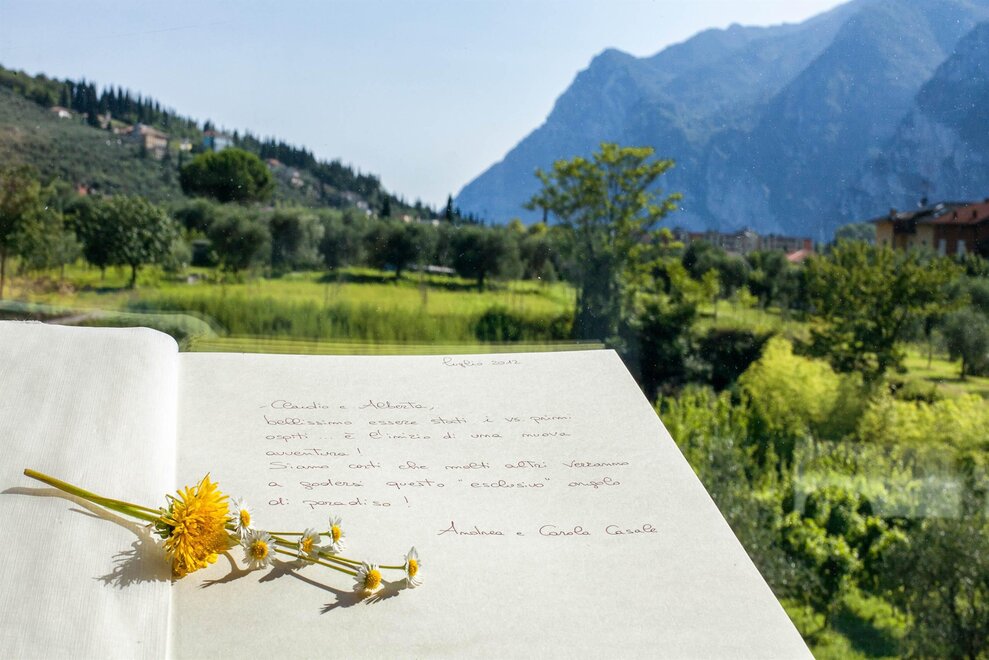 luglio 2012
- Claudio e Alberta,
bellissimo essere stati i vs. primi
ospiti ... è l'inizio di una nuova
avventura!
Siamo certi che molti altri verranno
a godersi questo "esclusivo" angolo
di paradiso!
Andrea e Carola Casale